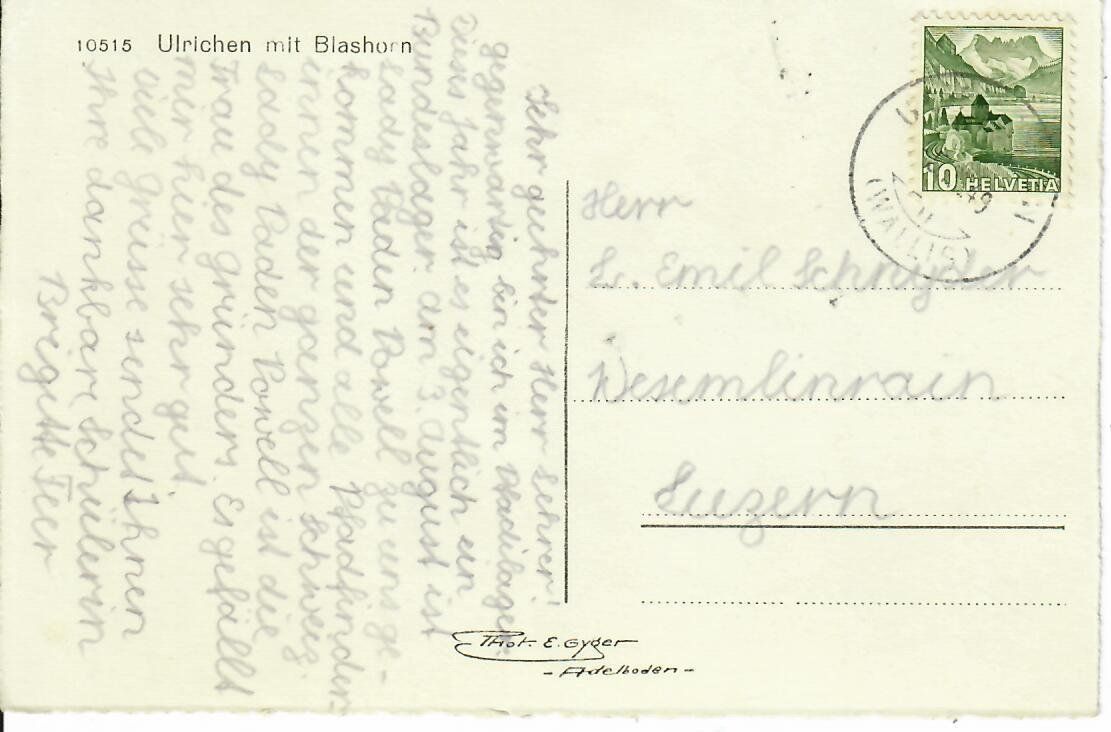 10515 Ulrichen mit Blashorn
Sehr geehrter Herr Lehrer!
Gegenwärtig bin ich im Pfadilager.
Dieses Jahr ist es eigentlich ein
Bundeslager. am 3. August ist
Lady Baden Powell zu uns ge-
kommen und alle Pfadfinder
in der ganzen Schweiz.
Lady Baden Powell ist die
Frau des Gründers. Es gefällt
mir hier sehr gut
Viele Grüsse sendet Ihnen
Ihre dankbare Schülerin
Brigitte Feer
10 HELVETIA
(WALLIS)
Herr
L. Emil Schnyder
Wesemlinrain
Luzern
Phot. E. Gyger
- Adelboden -